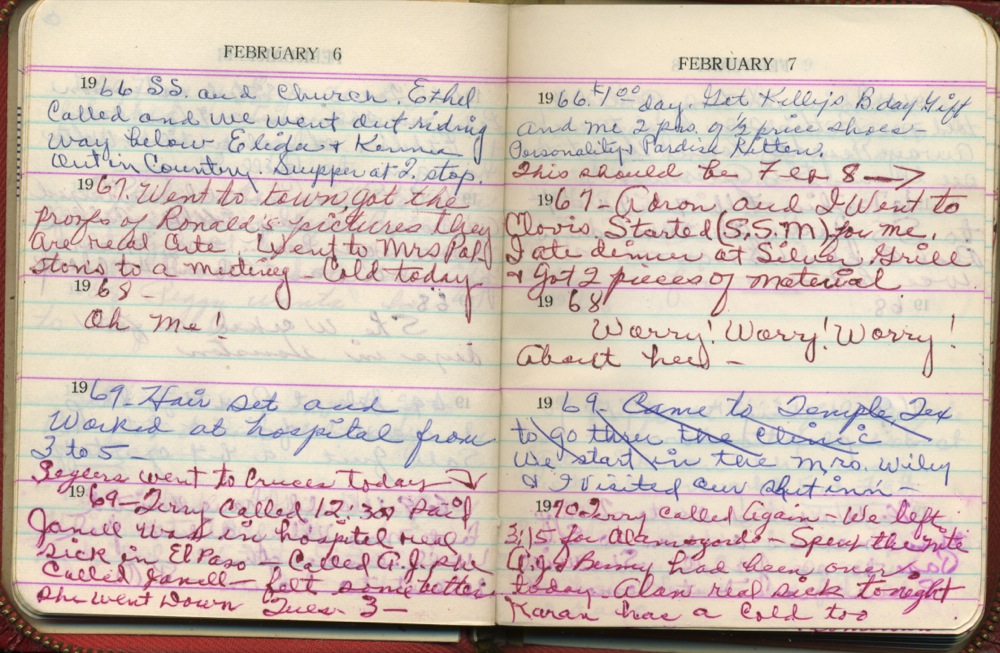 FEBRUARY 6
1966 SS. and Church. Ethel
Called and we went out riding
way below Elida & Kenna
Out in Country. Supper at 2. stop.
1967. Went to town got the
proofs of Ronald's pictures they
are real Cute Went to Mrs Pal
stons to a meeting Cold today
1968-
Oh me!
1969. Hair set and
Worked at hospital from
3 to 5-
Segers went to Cruces today
1969-Terry Called 12:30 Said
Janell was in hospital real
sick in El Paso - Called A.J. & he
Called Janell- felt some better
She went Down Tues. 3-
FEBRUARY 7
1966. $1.00 day. Got Kelly's Bday Gift
and me 2 prs. of 1/2 price shoes-
Personality &
This should be Feb 8
1967- Adron and I Went to
Clovis. Started (S.S.M) for me.
I ate dinner at Silver Grill
& got 2 pieces of material
1968
Worry! Worry! Worry!
About her -
1969- Came to Temple Tex
to go thru the Clinic
We start in the Mrs. Wiley
& I visited our shut inn-
1970 Terry called Again - We left
3:15 for Alamogordo - Spent the nite
A.J. & Benny had been over
today Alan real sick tonight
Karan has a Cold too